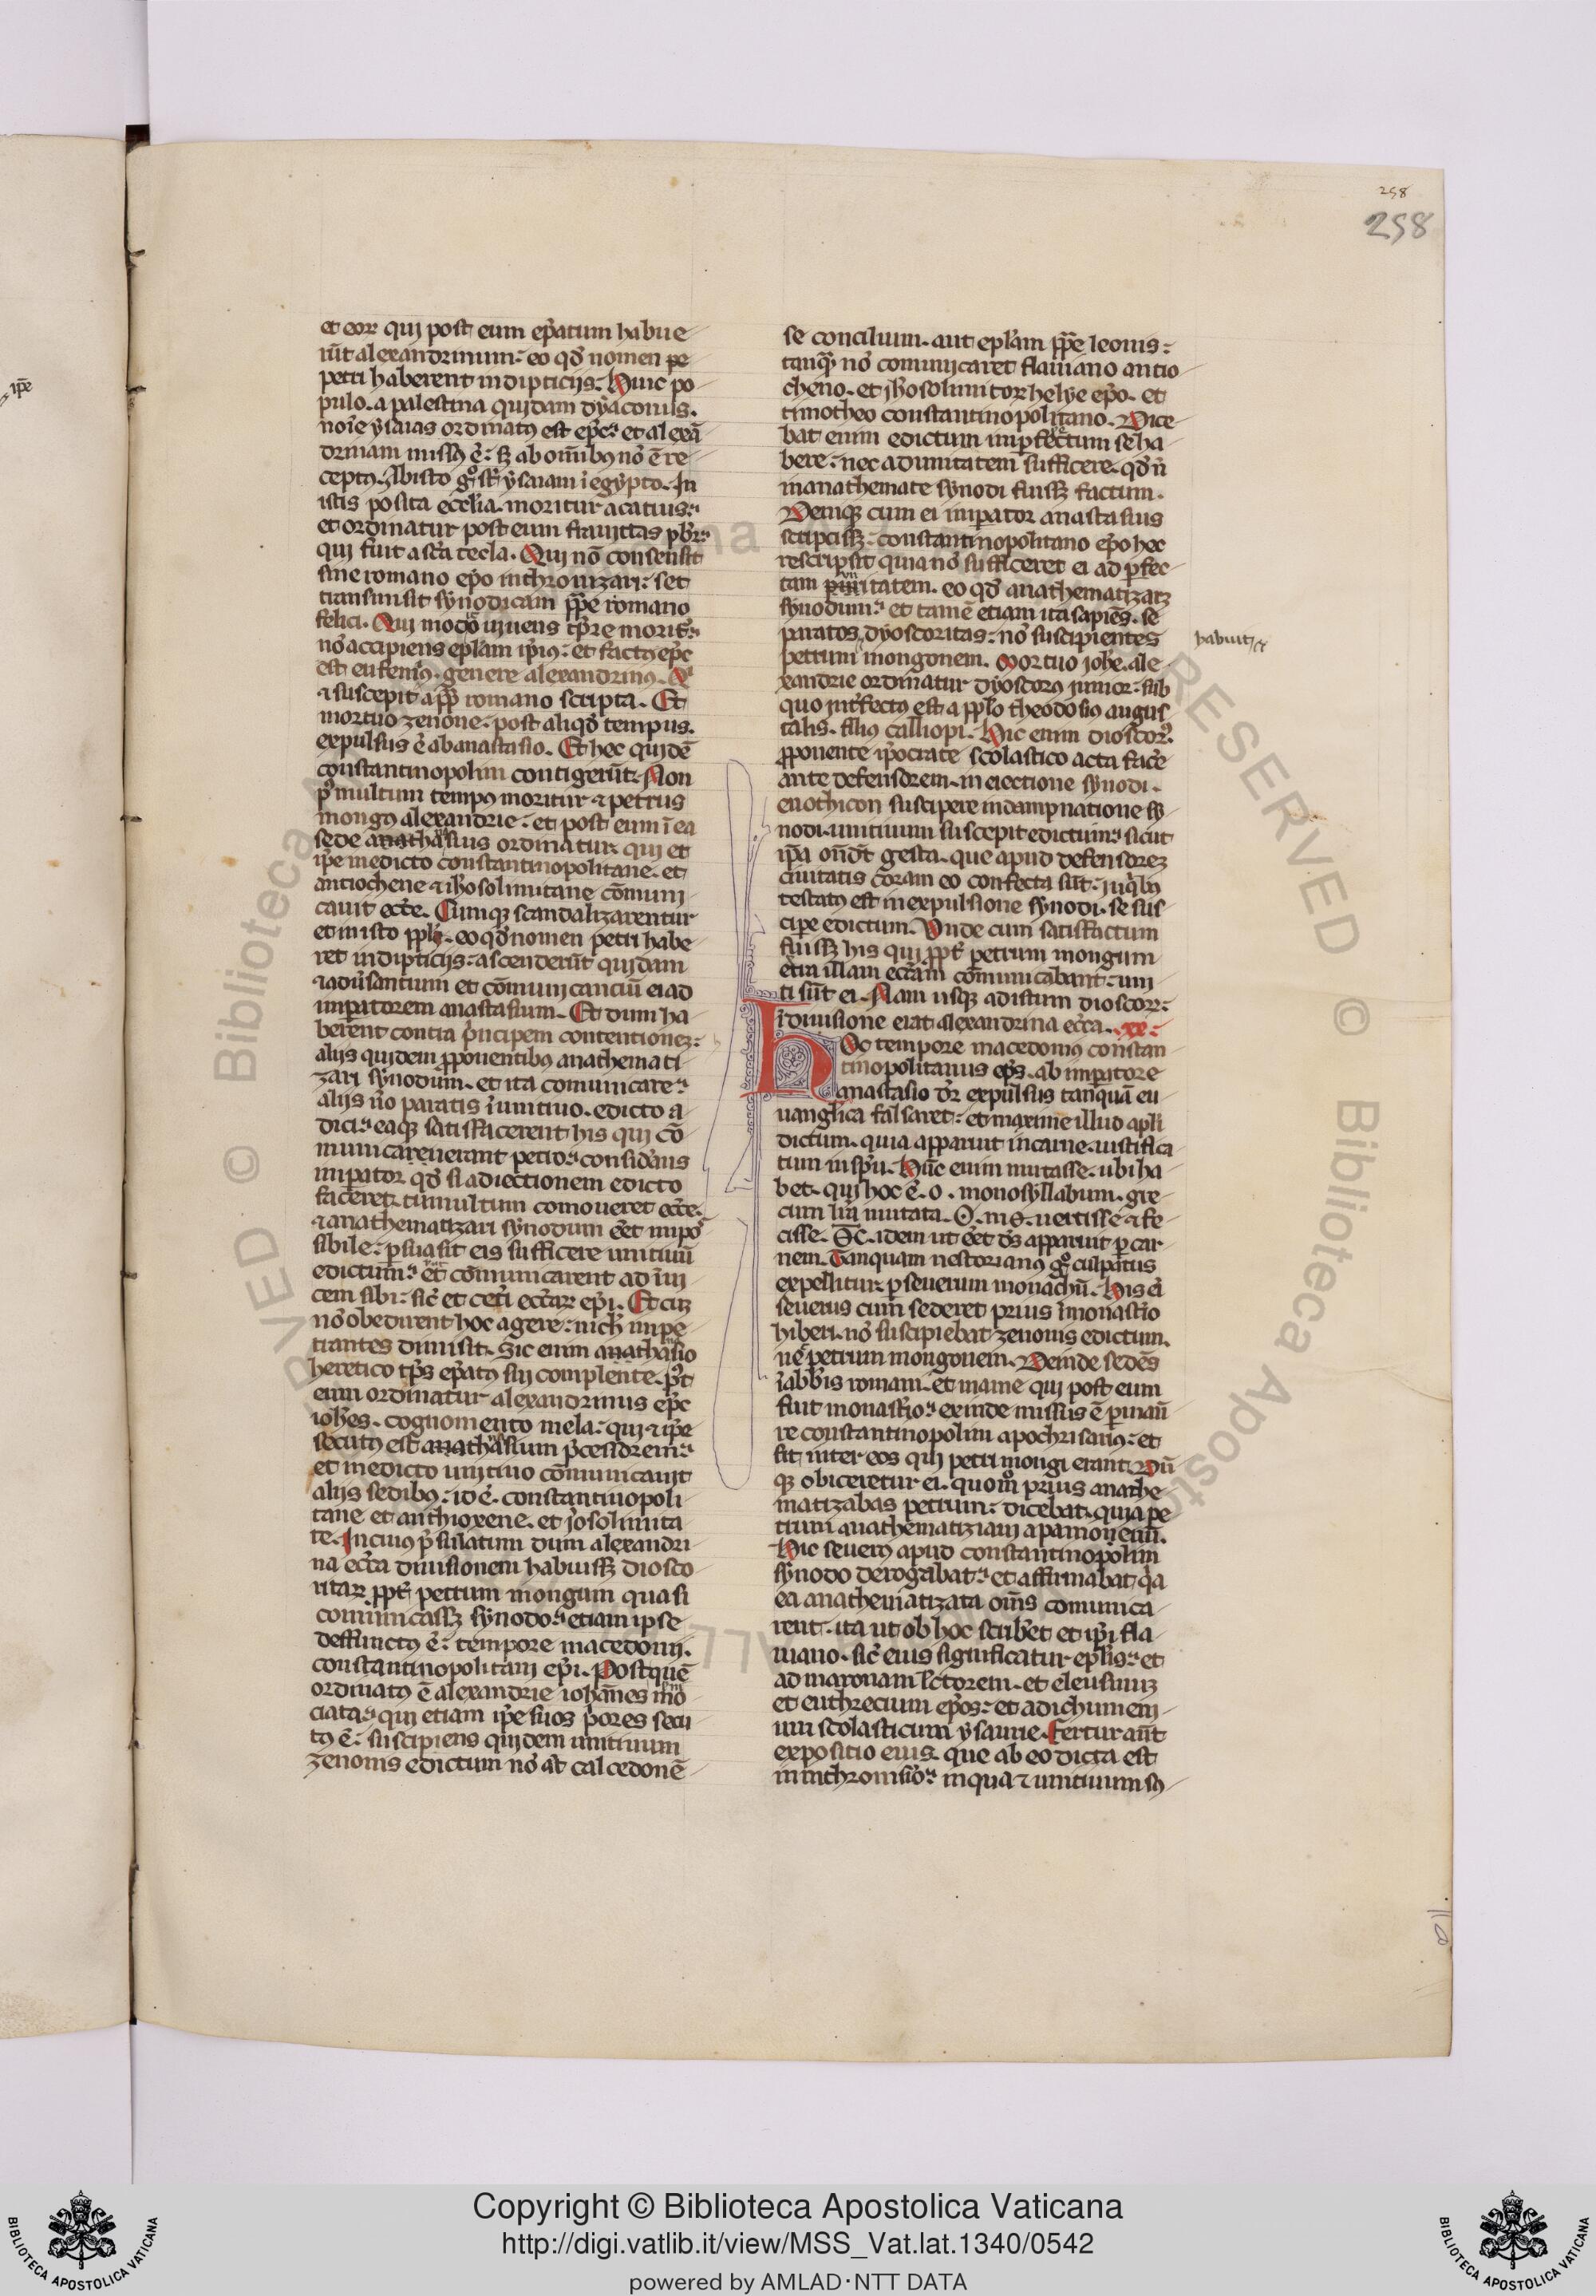 258
258
et eoꝝ qui post eum ep̄atum habue
rūt alexandrinum: eo qd̓ nomen pe
petri haberent in dipticijs. Huic po
pulo. a palestina quidam dyaconus.
noīe ysaias ordinatꝰ est ep̄c: et alexā
driam missꝰ ē: sꝫ ab om̄ibꝰ nō ē re
ceptꝰ. Ab isto gͦ st̄ ysaiam ī egypto. In
istis posita eccl̄ia. moritur acatius:
et ordinatur post eum frauittas pb̄r:
qui fuit a sc̄a tecla. Qui nō consensit
sine romano ep̄o inthronizari: set
transmisit synodicam pp̄e romano
felici. Qui modͦ viuens tp̄re morit̄:
nō accipiens epl̄am ip̄ius: et factꝰ ep̄c
est eufemiꝰ. genere alexandrinꝰ. Q̇
⁊ suscepit a pp̄ romano scripta. Et
mortuo zenone: post aliqd̓ tempus.
expulsus ē ab anastasio. Et hec quidē
constantinopolim contigerūt. Non
p̄ multum tempꝰ moritur ⁊ petrus
mongꝰ alexandrie: et post eum ī ea
sede anathasius ordinatur. qui et
ip̄e in edicto constantinopolitane. et
antiochene ⁊ ih̄osolimitane cōmuni
cauit ecc̄e. Cumqꝫ scandalizarentur
et in isto pp̄li. eo qd̓ nomen petri habe
ret in dipticijs: ascenderūt quidam
⁊ adu̓santium et cōmunicanciū ei ad
imp̄atorem anastasium. Et dum ha
berent contra p̓ncipem contentionez:
alijs quidem p̄ponentibus anathemati
zari synodum. et ita comunicare:
alijs nō paratis ī unitiuo. edicto a
dici: eaqꝫ satisfacerent his qui cō
municauerant petro: consid̓ans
imp̄ator qd̓ si adiectionem edicto
faceret. tumultum comoueret ecc̄e.
⁊ anathematizari synodum eēt impoͦ
sibile: p̱suasit eis sufficere unitiuū
edictum: et cōmunicarent ad īui
cem sibi: sic̄ et cet̓i ecc̄aꝝ ep̄i. Et cū
nō obedirent hoc agere: nich̓ impe
trantes dimisit. Sic enim anathasio
heretico tp̄s ep̄atꝰ sui complente. p̓t
eum ordinatur alexandrinus ep̄c
ioh̄es. cognomento mela: qui ⁊ ip̄e
secutꝰ est anathasium p̄cessorem:
et in edicto unitiuo cōmunicauit
alijs sedibꝰ: id ē. constantinopoli
tane et anthioxene. et iōsolimita
re. In cuiꝰ p̄sulatum dum alexandri
na ecc̄a diuisionem habuissꝫ diosco
ritaꝝ pp̄t petrum mongum quasi
comunicassꝫ synodo: etiam ipse
deffunctꝰ ē: tempore macedonij.
constantinopolitani ep̄i. Post quē
ordinatꝰ ē alexandrie ioh̄annes mō
ciata: qui etiam ip̄e suos p̓ores secu
tꝰ ē: suscipiens quidem unitiuum
zenonis edictum nō at̄ calcedonē
se concilium. aut epl̄am pp̄e leonis:
tanqͣ. nō comunicaret flauiano antio
cheno. et ih̄osolimitoꝝ helye ep̄o. et
timotheo constantinopolitano. Dice
bat enim edictum imp̱fectum se ha
bere: nec ad unitatem sufficere. qd̓ ū
in anathemate synodi fuissꝫ factum.
Deniqꝫ cum ei imp̱ator anastasius
scripsissꝫ: constantinopolitano ep̄o hec
rescripsit quia nō sufficeret ei ad p̱fec
tam unitatem. eo qd̓ anathematizatꝫ
synodum: et tamē etiam ita sapiēs. se
paratos dyoscoritas: nō suscipientes
petrum mongonem. Mortuo ioh̄e. ale
xandrie ordinatur dyoscorꝰ iunior: sub
quo int̓fectꝰ est a pp̄lo theodosiꝰ augus
talis. filiꝰ calliopi. Hic enim dioscorꝰ.
p̄ponente ip̄ocrate scolastico acta fac̄e
ante defensorem. in eiectione synodi.
enothicon suscipere in dampnatione sy
nodi. unitiuum suscepit edictum: sicut
ip̄a on̄dt̄ gesta. que apud defensorez
ciuitatis coram eo confecta sūt: in qͥbꝰ
testatꝰ est in expulsione synodi. se sus
cipe edictum. Vnde cum satisfactum
fuissꝫ his qui pp̄t petrum mongum
et̄in illam ecc̄am cōmunicabant: uni
ti sūt ei. Nam usqꝫ ad istum dioscoꝝ:
ī diuisione erat alexandrina ecc̄a. xx:
Hoc tempore macedoniꝰ constan
tinopolitanus ep̄s. ab imp̱atore
anastasio dr̄ expulsus tanquā eu
uanglīca falsaret: et maxime illud apl̄i
dictum. quia apparuit in carne. iustifica
tum in sp̄u. Hūc enim mutasse. ubi ha
bet. qui hoc ē. o. monosyllabum. gre
cum lr̄a mutata. O. in s. uertisse ⁊ fe
cisse. SC. idem ut eēt ds̄ apparuit p̱ car
nem. Tanquam nestorianꝰ gͦ culpatus
expellitur. p̱ seuerum monachū. His ei
seuerus cum sederet prius ī monast̓io
hiberi. nō suscipiebat zenonis edictum.
nec̄ petrum mongonem. Deinde sedēs
ī abb̄is romam. et maine qui post eum
fuit monast̓io: exinde missus ē p̱ maū
re constantinopolim apochrisariꝰ: et
fit inter eos qui petri mongi erant. Dū
qꝫ obiceretur ei. quomͦ prius anathe
matizabas petrum: dicebat. quia pe
trum anathematiziam apamoneum.
Hic seuerꝰ apud constantinopolim
synodo derogabat: et affirmabat qͣa
ea anathematizata om̄s comunica
rent. ita ut ob hoc scrib̓et et ip̄i fla
uiano. sic̄ eius significatur epl̄is: et
ad maronam lc̄torem. et eleusiniꝫ
et euthrecium ep̄os: et ad ichumeni
um scolasticum ysaurie. Fertur aūt
expositio eius. que ab eo dicta est
in inthronisio: in qua ⁊ unitiuum sꝰ
habuit
ip̄e
Copyright © Biblioteca Apostolica Vaticana
http://digi.vatlib.it/view/MSS_Vat.lat.1340/0542
powered by AMLAD·NTT DATA
BIBLIOTECA APOSTOLICA VATICANA
BIBLIOTECA APOSTOLICA VATICANA